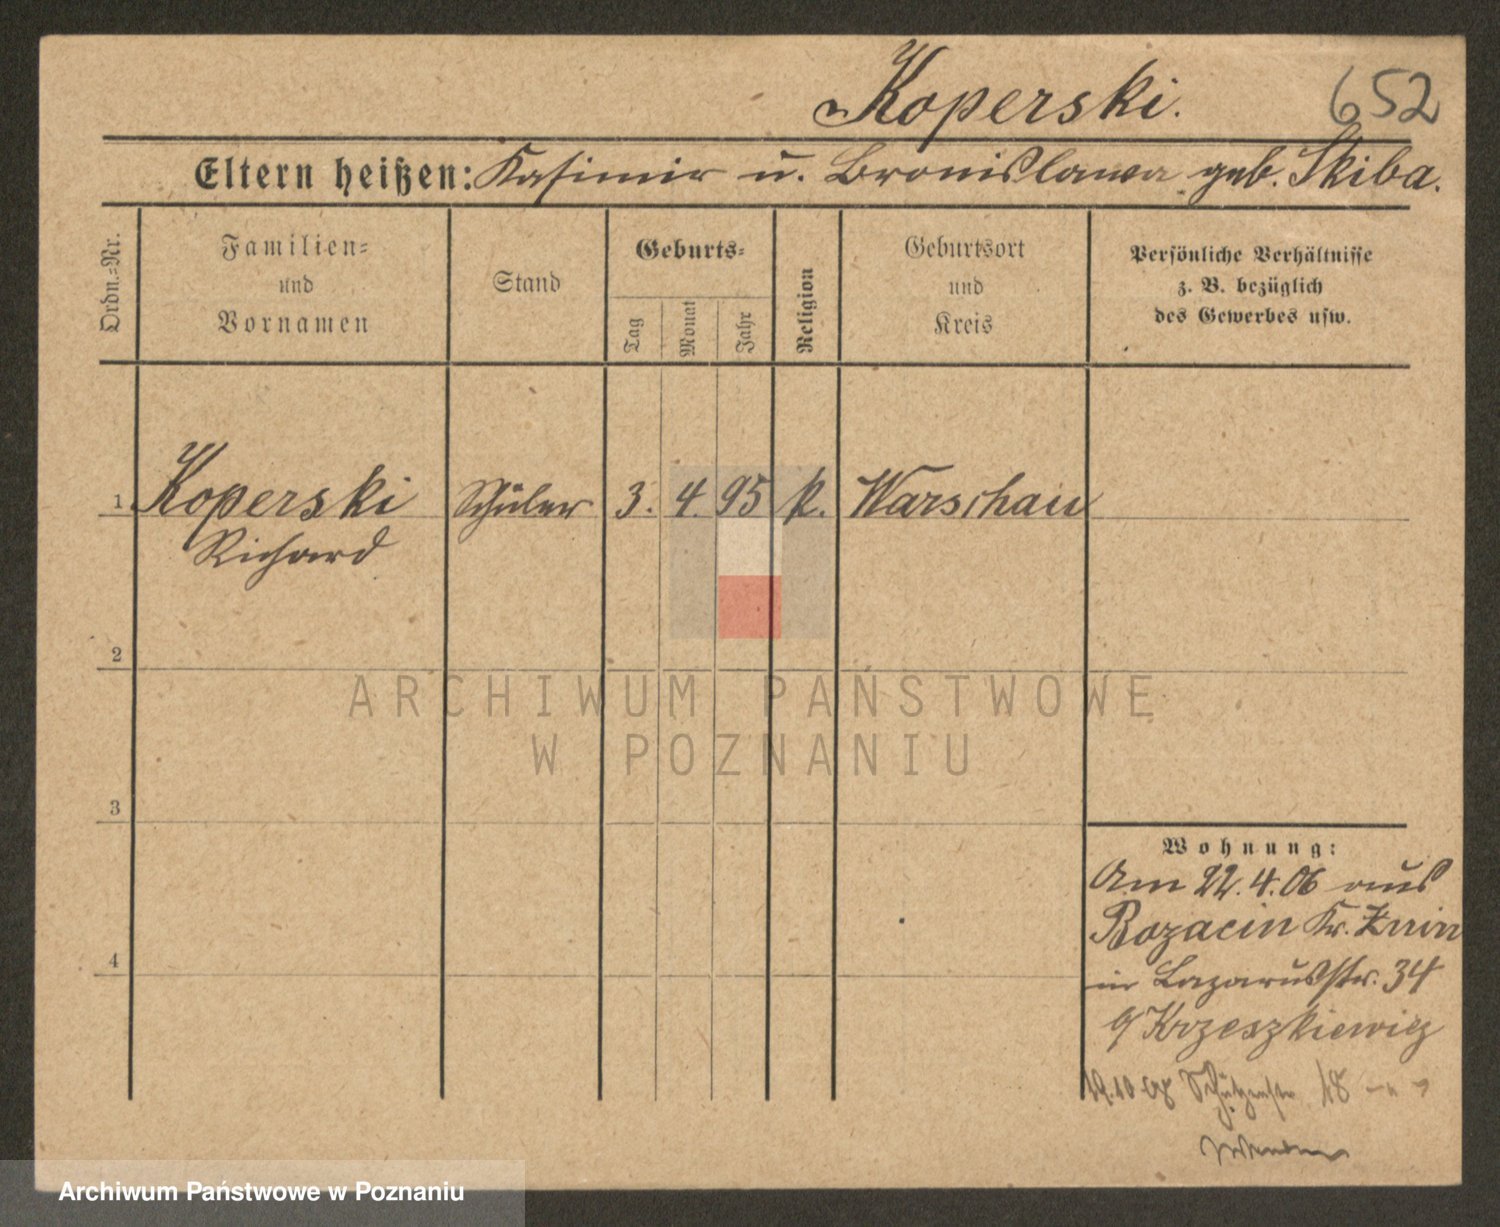 Koperski.
652
Eltern heißen: Kasimir u. Bronislawa geb. Skiba.
Ordn.=Nr.
Familien=
und
Vornamen
Stand
Geburts=
Tag
Monat
Jahr
Religion
Geburtsort
und
Kreis
Persönliche Verhältnisse
z. B. bezüglich
des Gewerbes usw.
1 Koperski Schüler 3. 4. 95 k. Warschau
Richard
2
3
4
Wohnung:
Am 22.4.06 aus
Rozacin Kr. Znin
in Lazarusstr. 34
b/ Krzeszkiewicz
19.10 08 Schützenstr 18 - " -
Wenden
ARCHIWUM PAŃSTWOWE
W POZNANIU
Archiwum Państwowe w Poznaniu